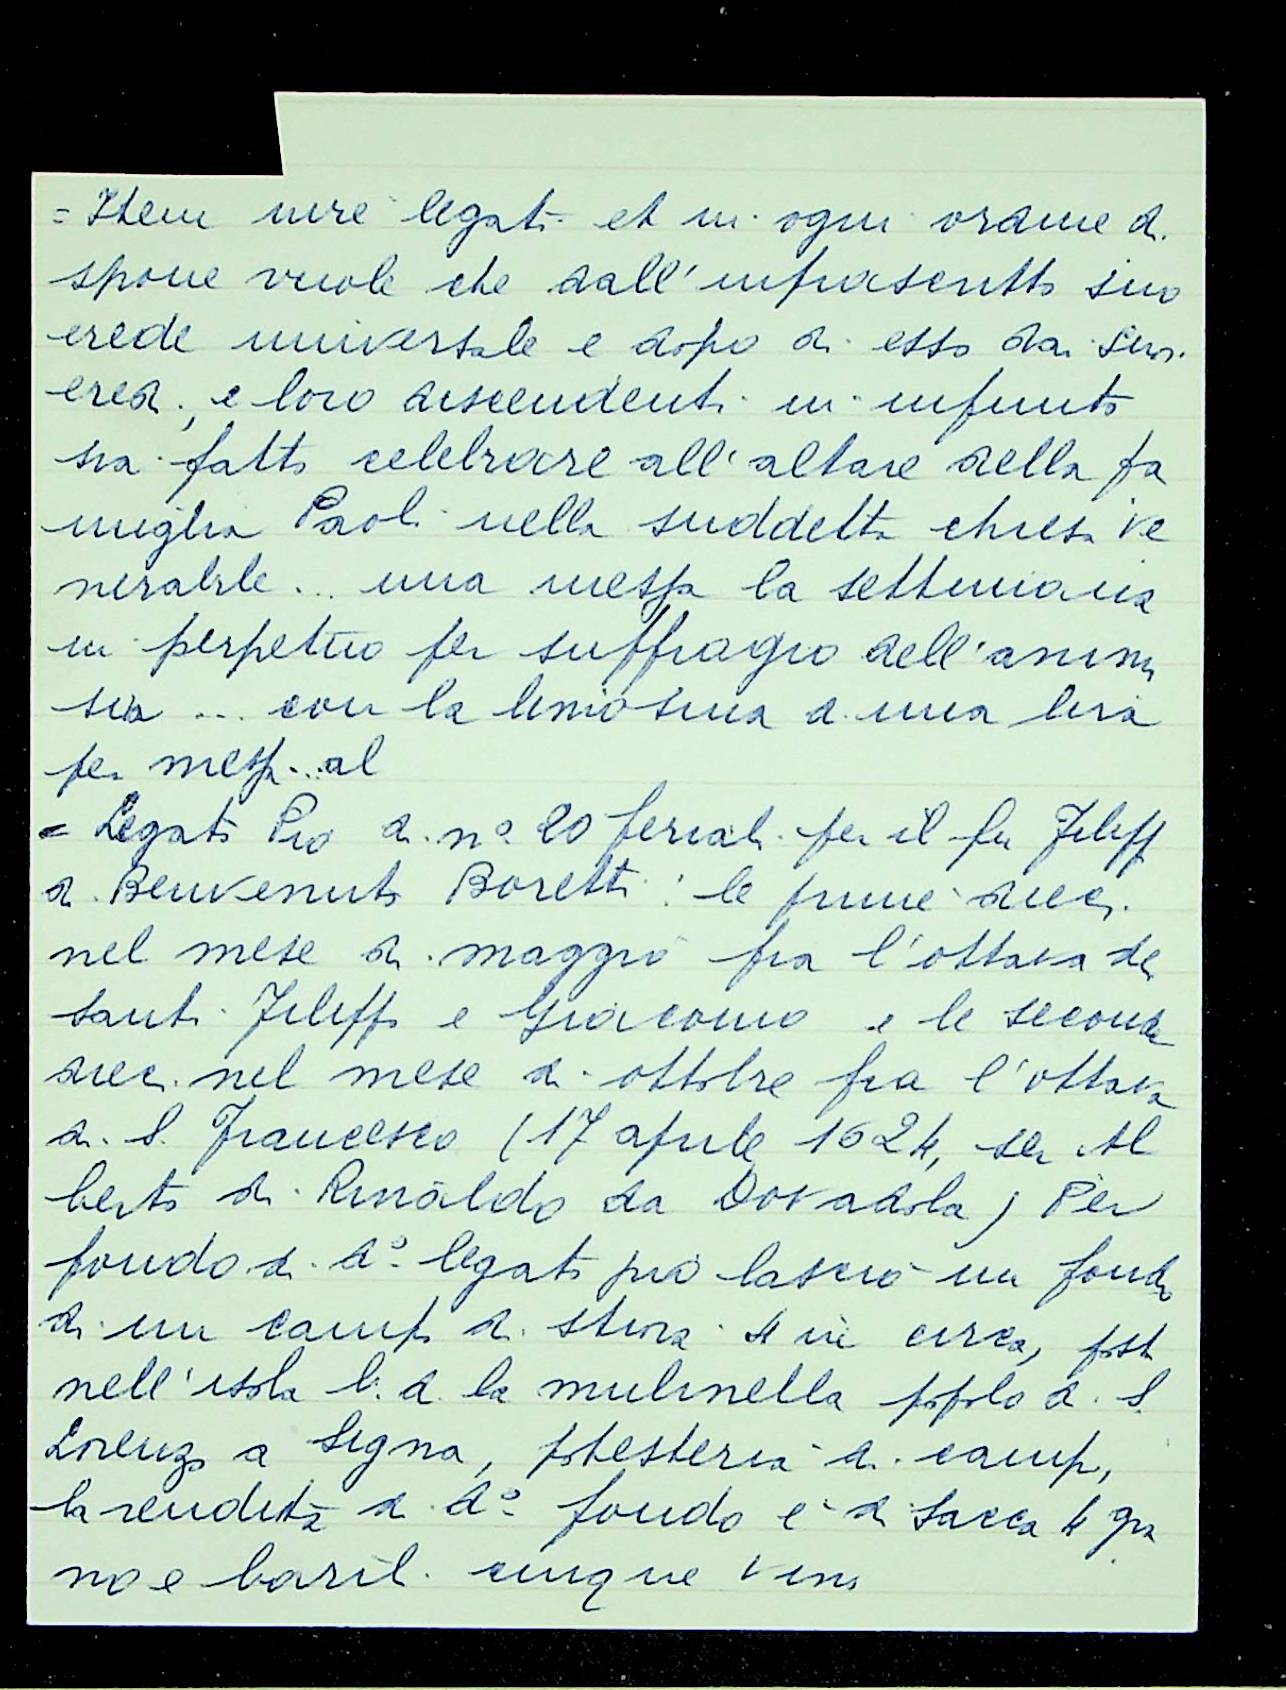 = Item iure legati et in ogni ordine di
spone vuole che dall'infrascritto suo
erede universale e dopo di esso dai suoi
eredi, e loro discendenti in infinito
sia fatto celebrare all'altare della fa
miglia Paoli nella suddetta chiesa ve
nerabile... una messa la settimana
in perpetuo per suffragio dell'anima
sua ... con la limosina di una lira
per messa... al
= Legato Pio di n° 20 feriali per il fu Filippo
di Benvenuto Boretti: le prime dieci
nel mese di maggio fra l'ottava dei
santi Filippo e Giacomo e le seconde
dieci nel mese di ottobre fra l'ottava
di S. Francesco (17 aprile 1624, ser Al
berto di Rinaldo da Dovadola) Per
fondo di d° legato pio lasciò un fondo
di un campo di stiora 4 in circa, posto
nell'isola l. d. la mulinella popolo di S.
Lorenzo a Signa, potesteria di campi,
la rendita di d° fondo è di sacca 4 gra
no e barili cinque vino